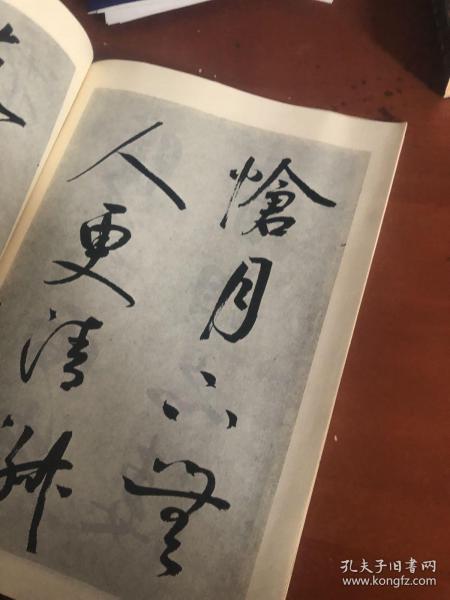 愴月下無
人更清
孔夫子旧书网
www.kongfz.com